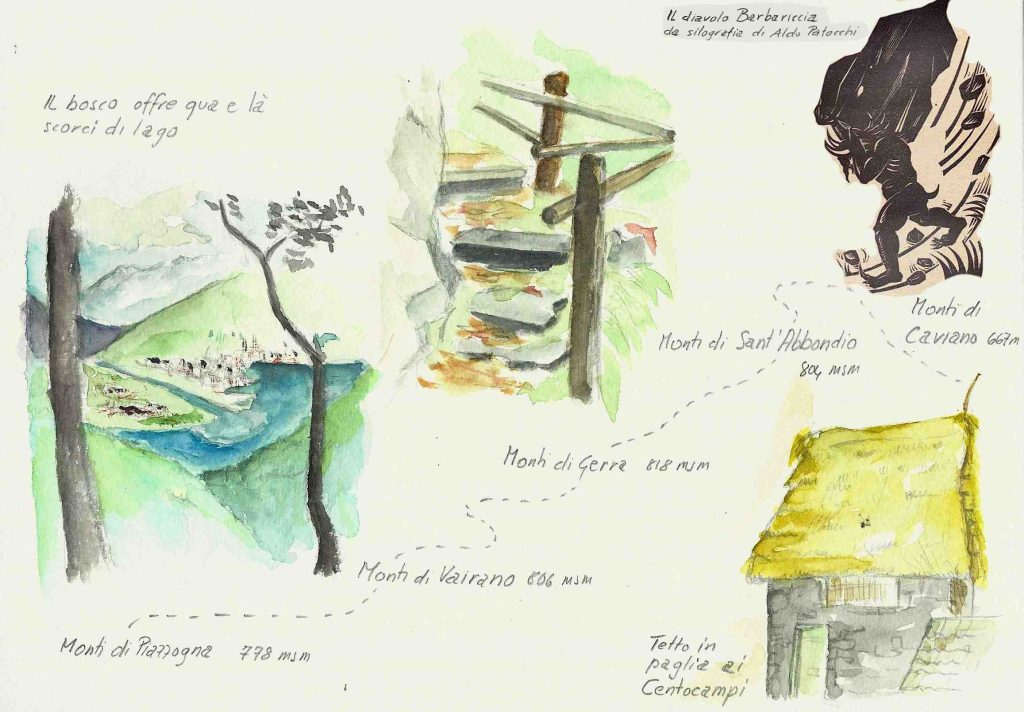 Il diavolo Barbariccia
da silografia di Aldo Patocchi
Il bosco offre qua e là
scorci di lago
Monti di
Caviano 667m
Monti di Sant'Abbondio
804 msm
Monti di Gerra 818 msm
Monti di Vairano 806 msm
Monti di Piazzogna 778 msm
Tetto in
paglia ai
Centocampi